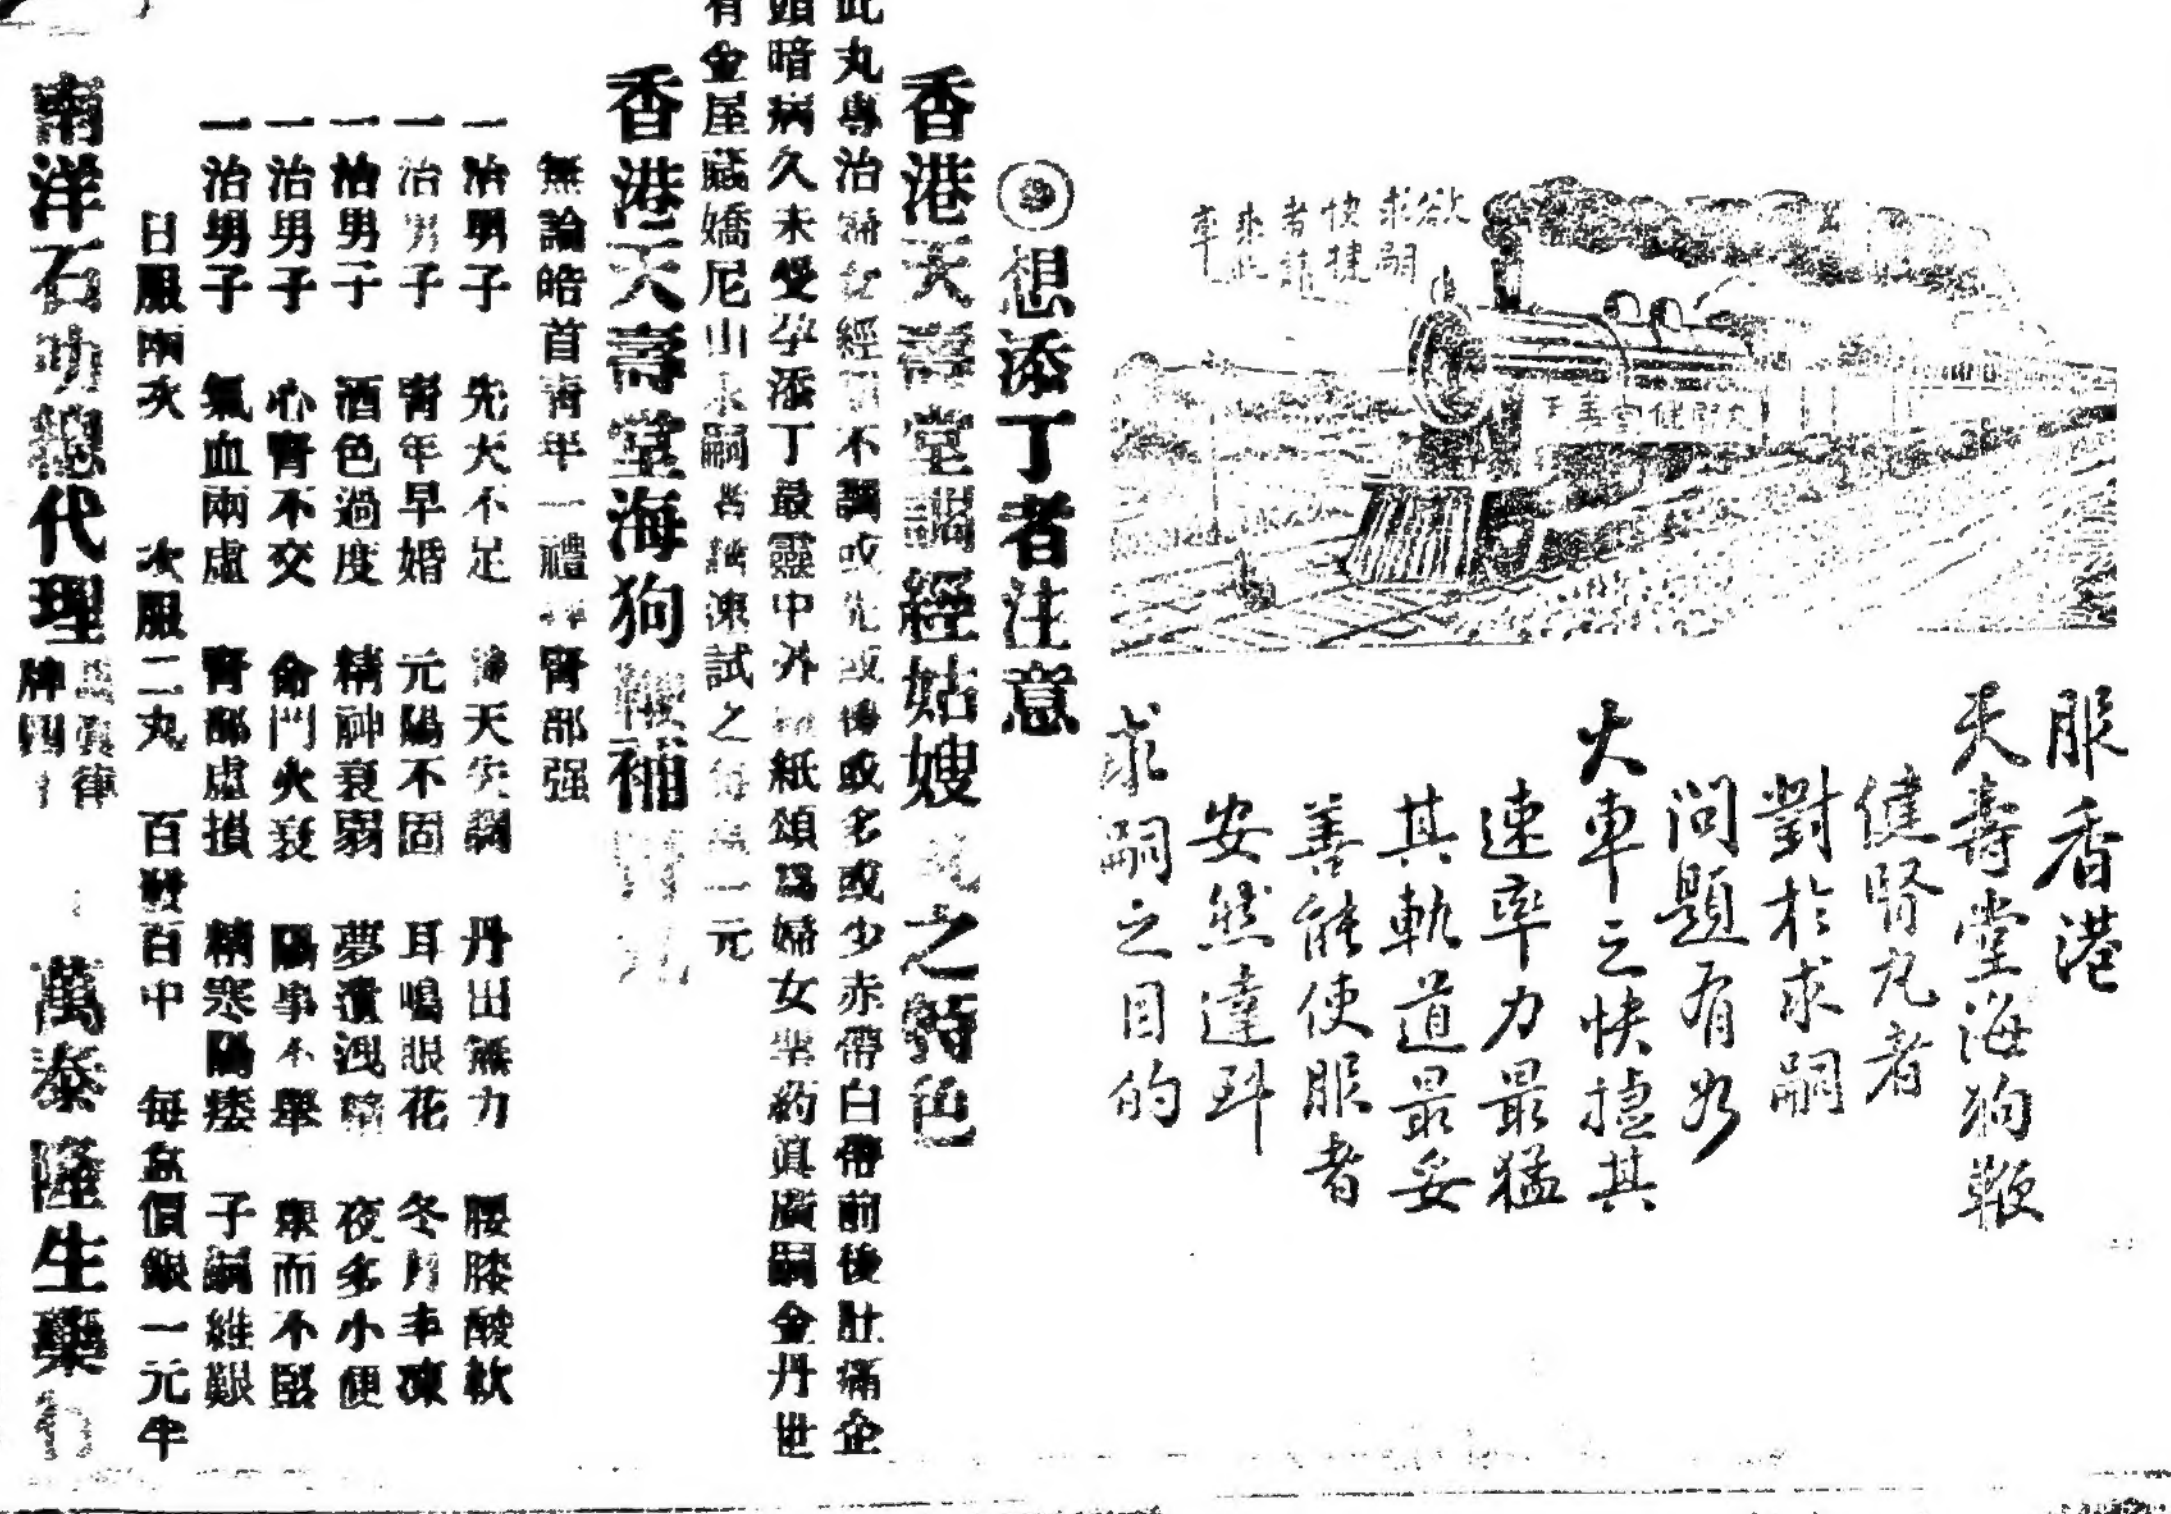 欲求嗣
快捷者
請來此
服香港
天壽堂海狗鞭
健腎丸者
對於求嗣
問題有如
火車之快捷其
速率力最猛
其軌道最妥
善能使服者
安然達到
求嗣之目的
想添丁者注意
香港天壽堂調經姑嫂丸之特色
此丸專治婦女經期不調或先或後或多或少赤帶白帶前後肚痛企
頭暗病久未受孕添丁最靈中外 紙頌爲婦女聖葯眞廣嗣金丹世
有金屋藏嬌尼山永嗣者請速試之每 一元
香港天壽堂海狗鞭補腎丸
無論皓首靑年一禮 腎部强
一治男子 先天不足 後天失調 丹田無力 腰膝酸軟
一治男子 靑年早婚 元陽不固 耳鳴眼花 冬月丰凍
一治男子 酒色過度 精神衰弱 夢遺洩精 夜多小便
一治男子 心腎不交 命門火衰 陽事不舉 舉而不堅
一治男子 氣血兩虛 腎部虛損 精寒陽痿 子嗣維艱
日服兩次 次服二丸 百發百中 每盒價銀一元半
南洋石叻總代理
律
牌四
萬泰隆生藥行